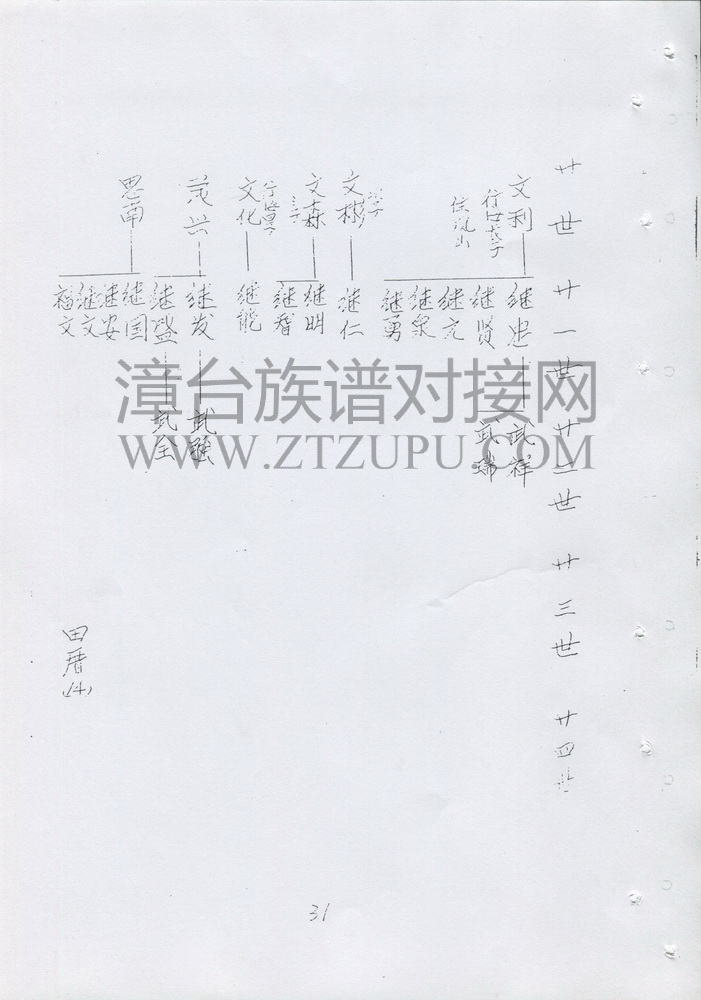 廿世 廿一世 廿二世 廿三世 廿四世
文利
住岚山
继忠
继贤
继亮
继泉
继勇
武祥
武瑞
文彬
继仁
文森
三子
继明
继智
文化
继能
茂兴
继发
继盛
武强
武全
思南
继国
继安
继文
福文
田厝(14)
31
漳台族谱对接网
WWW.ZTZUPU.COM